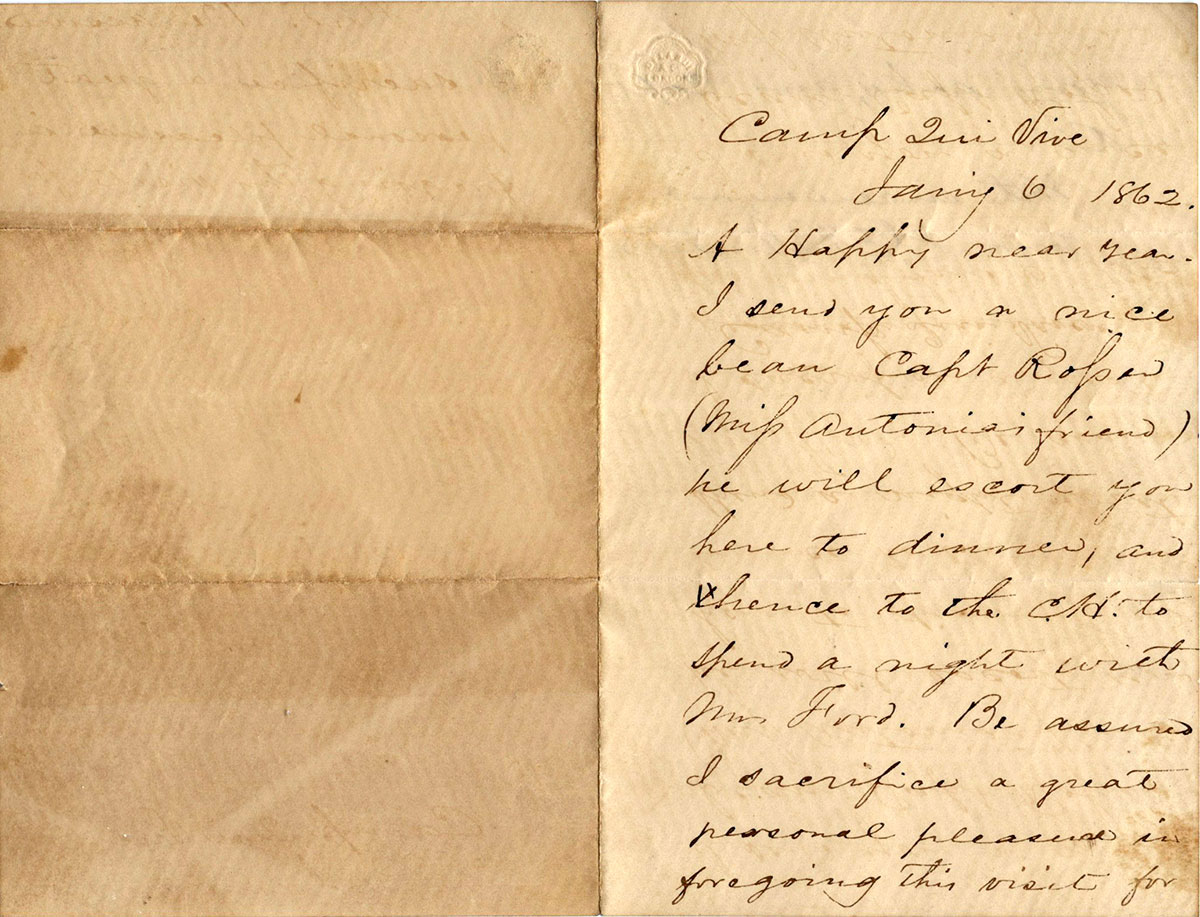 Camp Qui Vive
Jan'y 6 1862.
A Happy new year.
I send you a nice
beau Capt Rosser
(Miss Antonia's friend)
he will escort you
here to dinner, and
thence to the C.H. to
spend a night with
Mrs Ford. Be assured
I sacrifice a great
personal pleasure in
foregoing this visit for